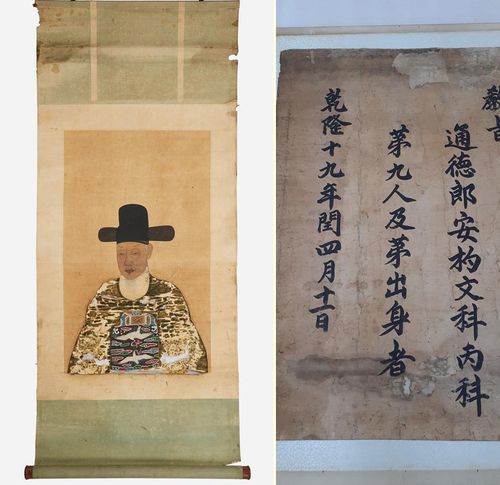 敎旨
通德郎安杓文科丙科
第九人及第出身者
乾隆十九年閏四月十一日